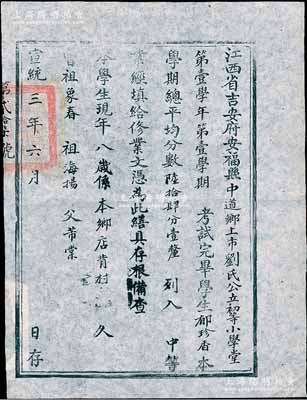 江西省吉安府安福縣中道鄉上市劉氏公立初等小學堂
第壹學年第壹學期 考試完畢學生郁珍香本
學期總平均分數陸拾肆分壹釐 列入 中等
業經填給修業文憑為此繕具存根備查
學生現年八歲係本鄉店背村 久
曾祖象春 祖海揚 父
宣統三年六月 日存
第貳拾 號